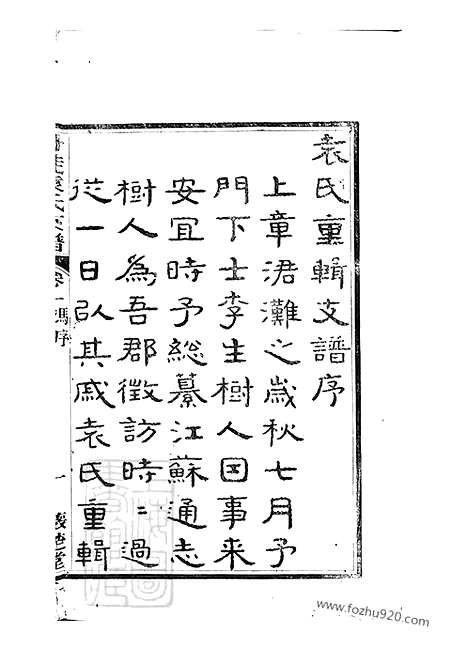 袁氏重輯支譜序
上章涒灘之歲秋七月予
門下士李生樹人因事来
安宜時予総纂江蘇通志
樹人為吾郡徵訪時〻過
從一日以其戚袁氏重輯
袁氏支譜
卷一馮序
一
www.fozhu920.com